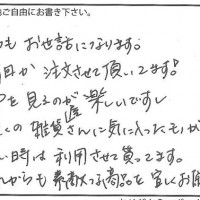 ご自由にお書き下さい。
つもお世話になります。
回か注文させて頂いてます。
を見るのが楽しいですし
くの雑貨屋さんに気に入ったもが
い時は利用させて貰ってます。
からも素敵な商品を宜しくお願